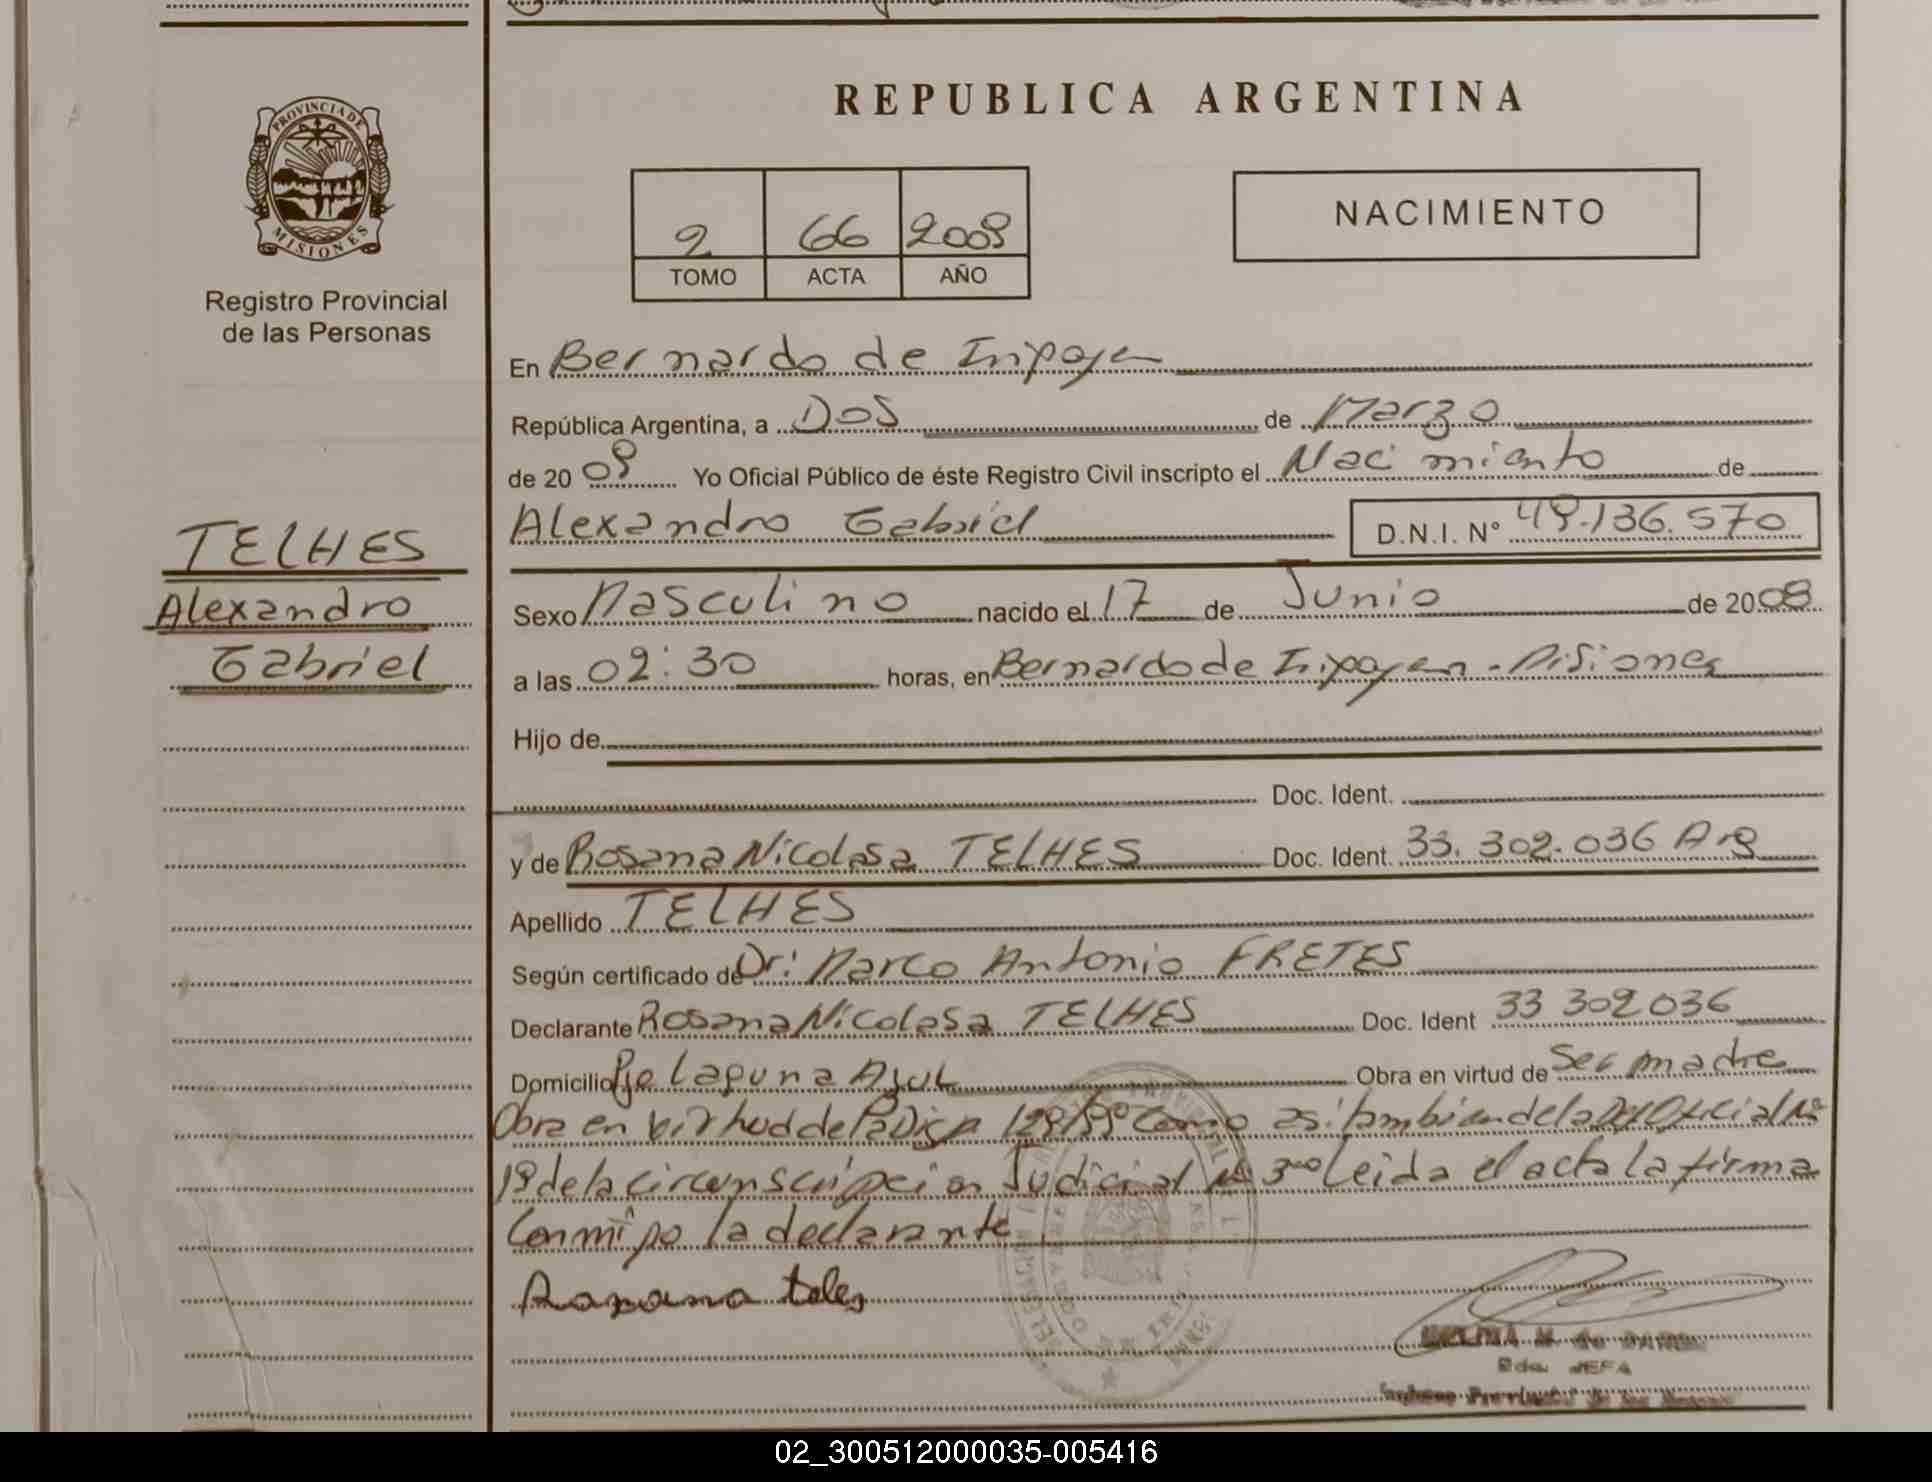 REPUBLICA ARGENTINA
PROVINCIA DE
MISIONES
Registro Provincial
de las Personas
2 66 2009
TOMO ACTA AÑO
NACIMIENTO
TELHES
Alexandro
Gabriel
En Bernardo de Irigoyen
República Argentina, a Dos de Marzo
de 20 09 Yo Oficial Público de éste Registro Civil inscripto el Nacimiento de
Alexandro Gabriel D.N.I. N° 49.136.570
Sexo Masculino nacido el 17 de Junio de 2008
a las 02:30 horas, en Bernardo de Irigoyen - Misiones
Hijo de
Doc. Ident.
y de Rosana Nicolasa TELHES Doc. Ident. 33.302.036 Arg
Apellido TELHES
Según certificado de Dr: Marco Antonio FRETES
Declarante Rosana Nicolasa TELHES Doc. Ident 33 302 036
Domicilio Pje Laguna Azul Obra en virtud de Ser madre
Obra en virtud de la como asi tambien de la Oficial N°
1° de la circunscripcion Judicial N° 3 Leida el acta la firma
Conmigo la declarante
Rosana teles
Bda. JEFA
02_300512000035-005416